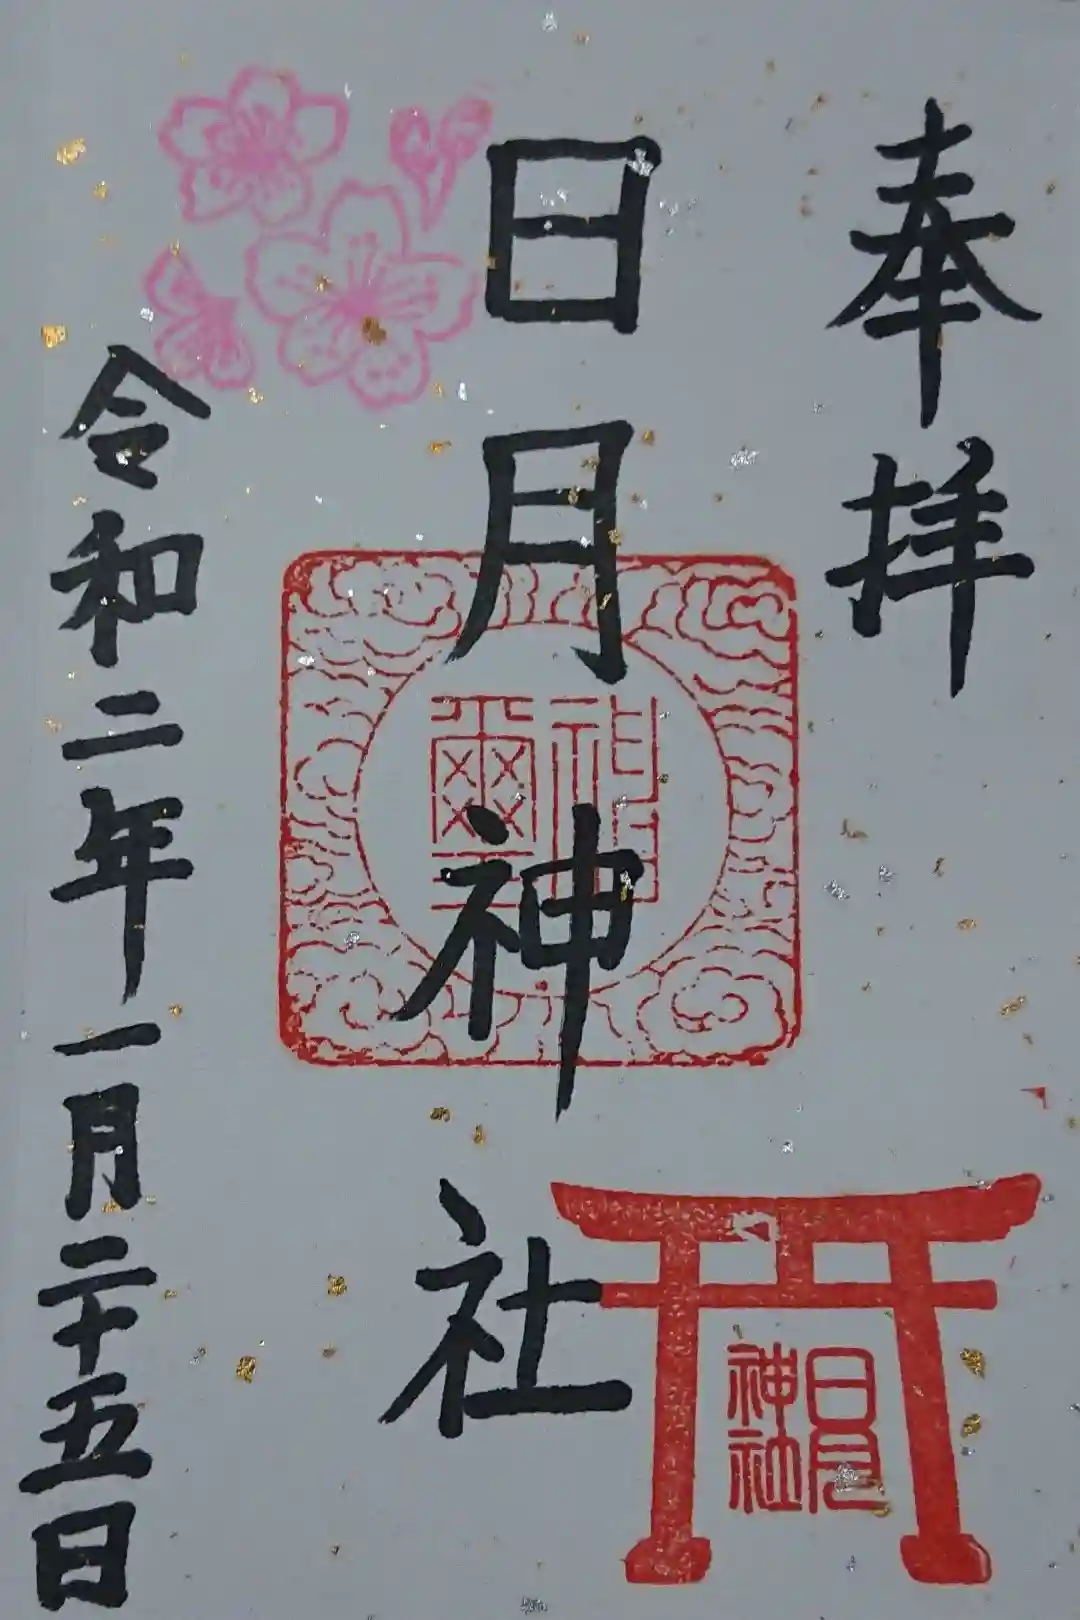 奉拝
日月神社
令和二年一月二十五日
日月
神社